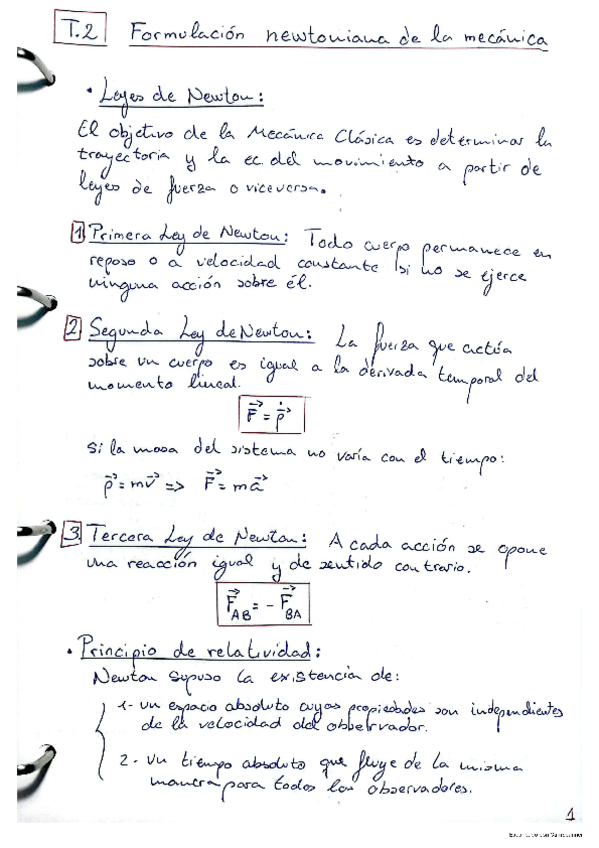 T.2 Formulación newtoniana de la mecánica
• Leyes de Newton:
El objetivo de la Mecánica Clásica es determinar la
trayectoria y la ec. del movimiento a partir de
leyes de fuerza o viceversa.
1 Primera Ley de Newton: Todo cuerpo permanece en
reposo o a velocidad constante si no se ejerce
ninguna acción sobre él.
2 Segunda Ley de Newton: La fuerza que actúa
sobre un cuerpo es igual a la derivada temporal del
momento lineal.
F⃗ = ṗ⃗
Si la masa del sistema no varía con el tiempo:
p⃗ = mv⃗ => F⃗ = ma⃗
3 Tercera Ley de Newton: A cada acción se opone
una reacción igual y de sentido contrario.
F⃗_AB = - F⃗_BA
• Principio de relatividad:
Newton supuso la existencia de:
1- Un espacio absoluto cuyas propiedades son independientes
de la velocidad del observador.
2- Un tiempo absoluto que fluye de la misma
manera para todos los observadores.
1